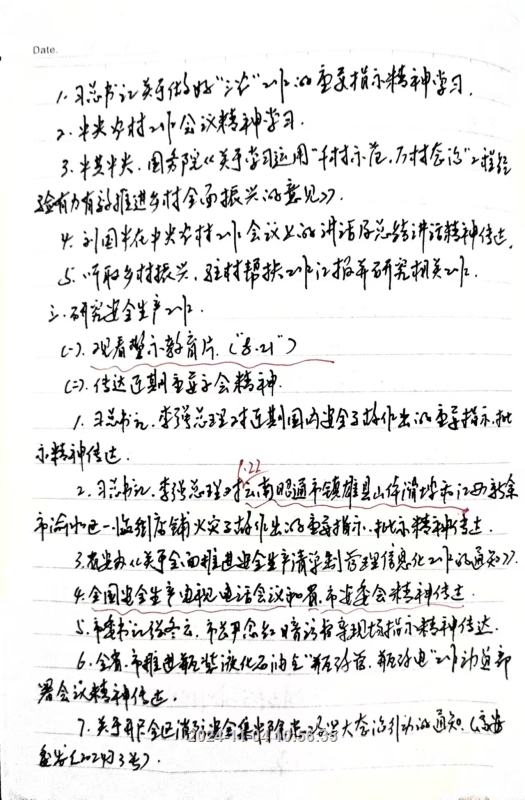 Date.
1. 习总书记关于做好“三农”工作的重要指示精神学习.
2. 中央农村工作会议精神学习.
3. 中共中央、国务院《关于学习运用“千村示范、万村整治”工程经
验有力有效推进乡村全面振兴的意见》.
4. 刘国中在中央农村工作会议上的讲话及总结讲话精神传达.
5. 听取乡村振兴、驻村帮扶工作汇报并研究相关工作.
三. 研究安全生产工作.
(一). 观看警示教育片. (“8.21”)
(二). 传达近期重要会精神.
1. 习总书记、李强总理对近期国内安全事故作出的重要指示、批
示精神传达.
1.22
2. 习总书记、李强总理对云南昭通市镇雄县山体滑坡和江西新余
市渝水区一临街店铺火灾事故作出的重要指示、批示精神传达.
3. 安办《关于全面推进安全生产清单制管理信息化工作的通知》.
4. 全国安全生产电视电话会议和省、市安委会精神传达.
5. 市委书记、市长暗访督导现场指示精神传达.
6. 全省、市推进瓶装液化石油气“瓶改管、瓶改电”工作动员部
署会议精神传达.
7. 关于开展全区消防安全集中除患大整治行动的通知.
发〔2024〕3号).
2024-11-04 10:56:35